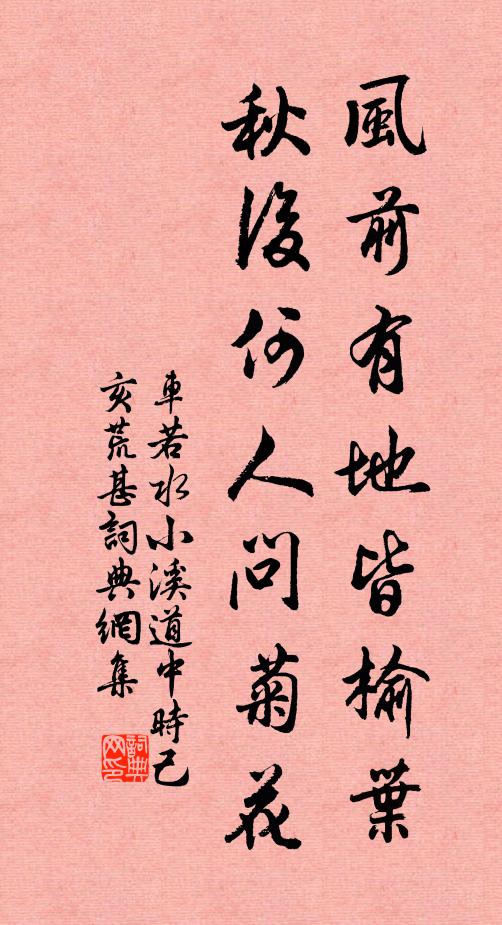 風前有地皆榆葉
秋後何人問菊花
車若水小溪道中時己
亥荒甚詞典網集
詞典
网印